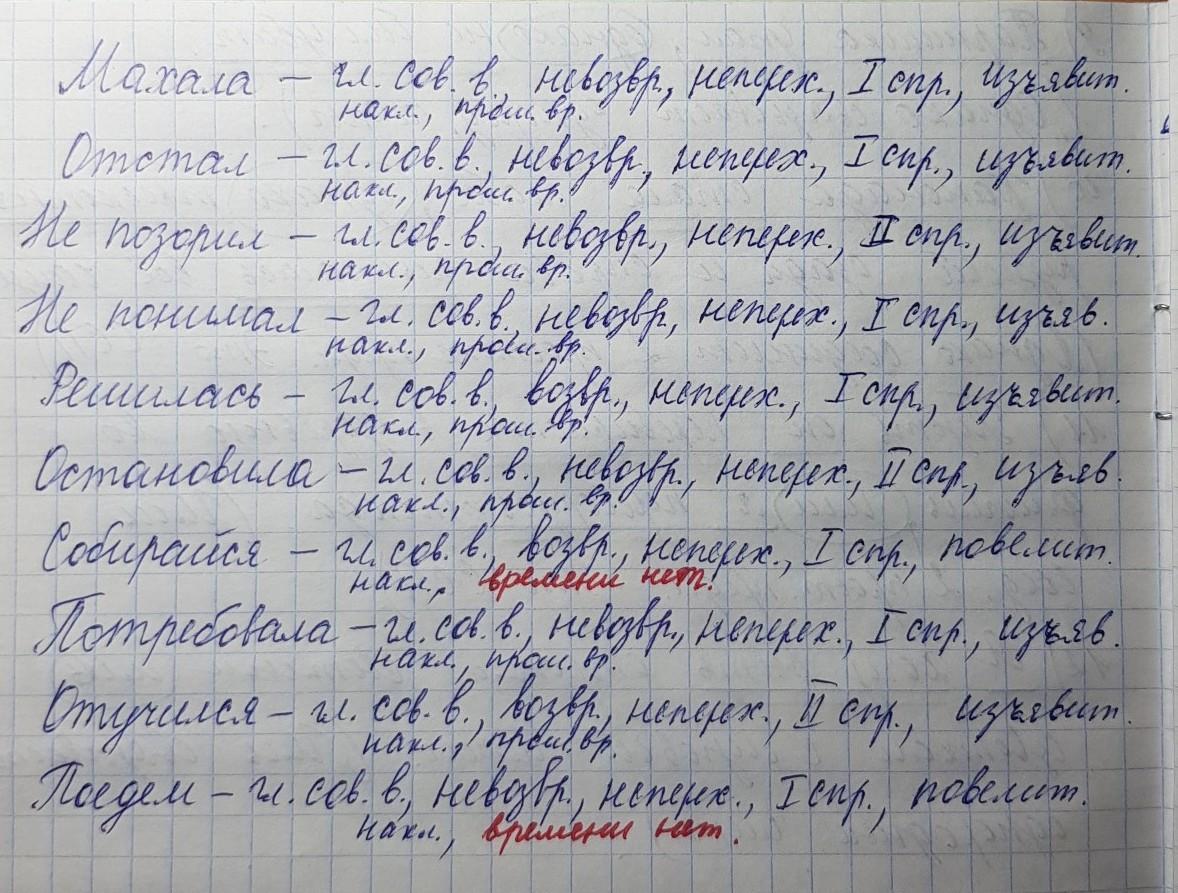 Махала – гл. сов. в., невозвр., неперех., I спр., изъявит.
накл., прош. вр.
Отстал – гл. сов. в., невозвр., неперех., I спр., изъявит.
накл., прош. вр.
Не позорил – гл. сов. в., невозвр., неперех., II спр., изъявит.
накл., прош. вр.
Не понимал – гл. сов. в., невозвр., неперех., I спр., изъяв.
накл., прош. вр.
Решилась – гл. сов. в., возвр., неперех., I спр., изъявит.
накл., прош. вр.
Остановила – гл. сов. в., невозвр., неперех., II спр., изъяв.
накл., прош. вр.
Собирайся – гл. сов. в., возвр., неперех., I спр., повелит.
накл., времени нет.
Потребовала – гл. сов. в., невозвр., неперех., I спр., изъяв.
накл., прош. вр.
Отучился – гл. сов. в., возвр., неперех., II спр., изъявит.
накл., прош. вр.
Поедем – гл. сов. в., невозвр., неперех., I спр., повелит.
накл., времени нет.